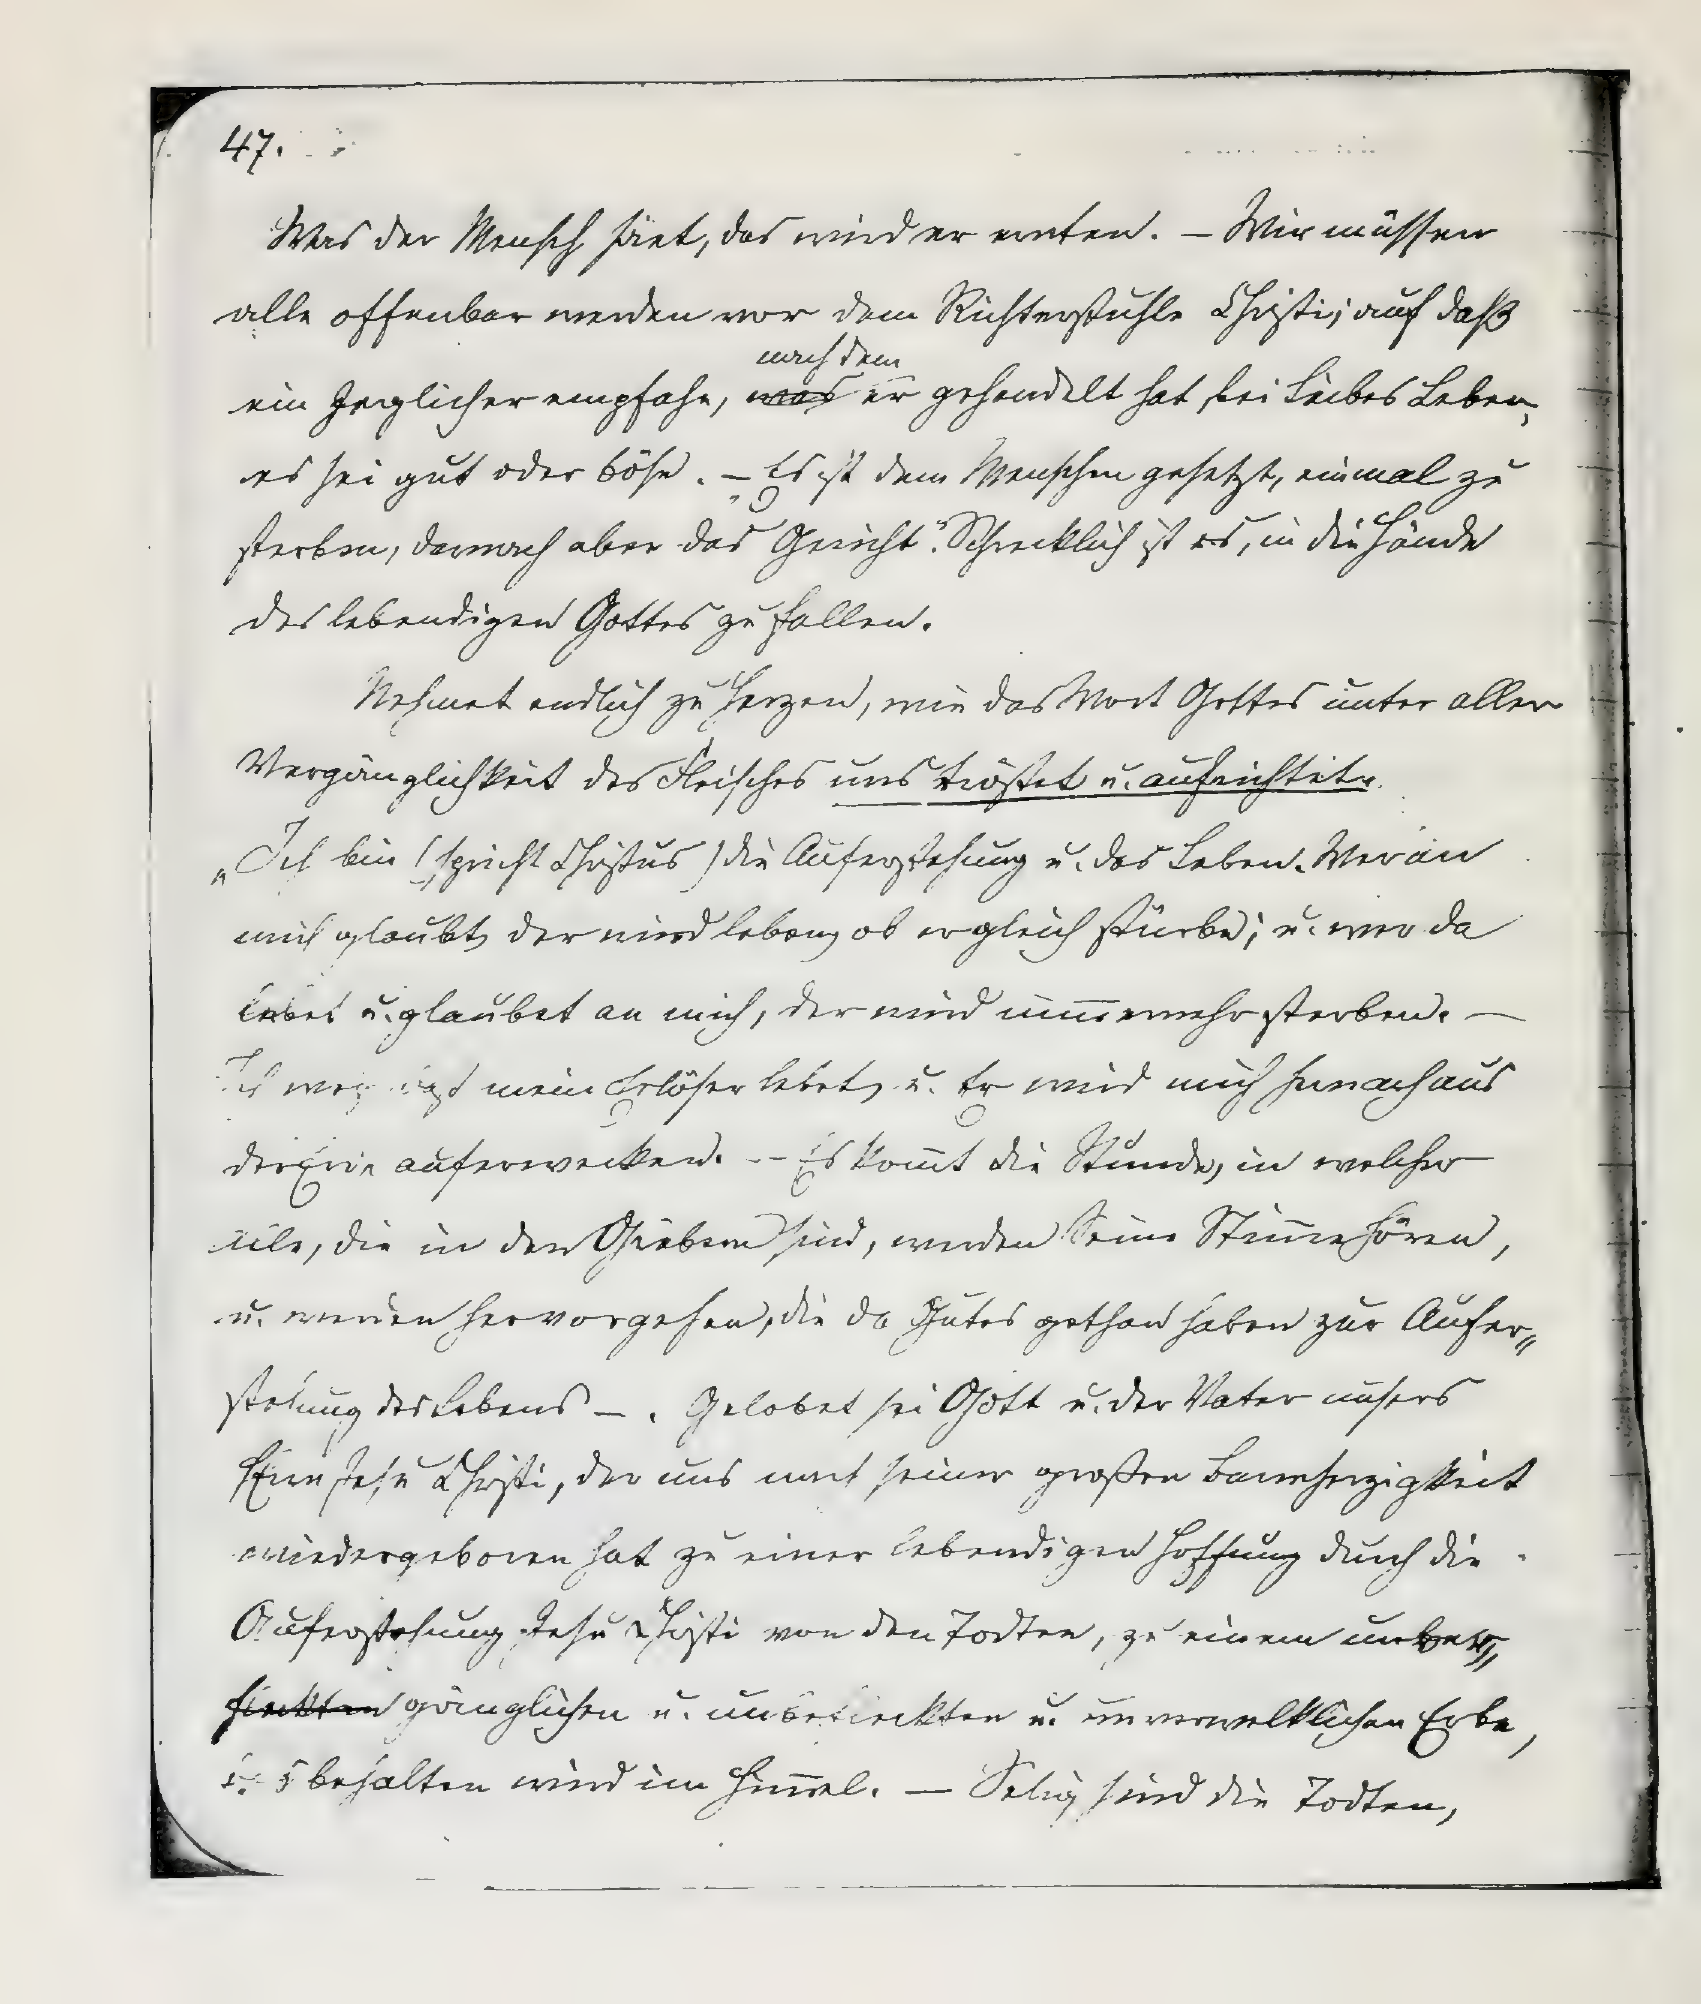 47.
Was der Mensch säet, das wird er ernten. – Wir müssen
alle offenbar werden vor dem Richterstuhle Christi, auf daß
nach dem
ein Jeglicher empfahe, was er gehandelt hat bei Leibes Leben,
es sei gut oder böse. – Es ist dem Menschen gesetzt, einmal zu
sterben, darnach aber das Gericht". Schrecklich ist es, in die Hände
des lebendigen Gottes zu fallen.
Nehmet endlich zu Herzen, wie das Wort Gottes unter aller
Vergänglichkeit des Fleisches uns tröstet u. aufrichtet.
„Ich bin (spricht Christus) die Auferstehung u. das Leben. Wer an
mich glaubt, der wird leben, ob er gleich stürbe; u. wer da
lebet u. glaubet an mich, der wird nim̅ermehr sterben. –
Ich weiß, daß mein Erlöser lebet, u. Er wird mich hernach aus
der Erde auferwecken. – Es kom̅t die Stunde, in welcher
alle, die in den Gräbern sind, werden Seine Stim̅e hören,
u. werden hervorgehen, die da Gutes gethan haben zur Aufer„
stehung des Lebens –. Gelobet sei Gott u. der Vater unsers
HErrn Jesu Christi, der uns nach seiner großen Barmherzigkeit
wiedergeboren hat zu einer lebendigen Hoffnung durch die
Auferstehung Jesu Christi von den Todten, zu einem unver„
fleckten gänglichen u. unbefleckten u. unverwelklichen Erbe,
behalten wird im Him̅el. – Selig sind die Todten,